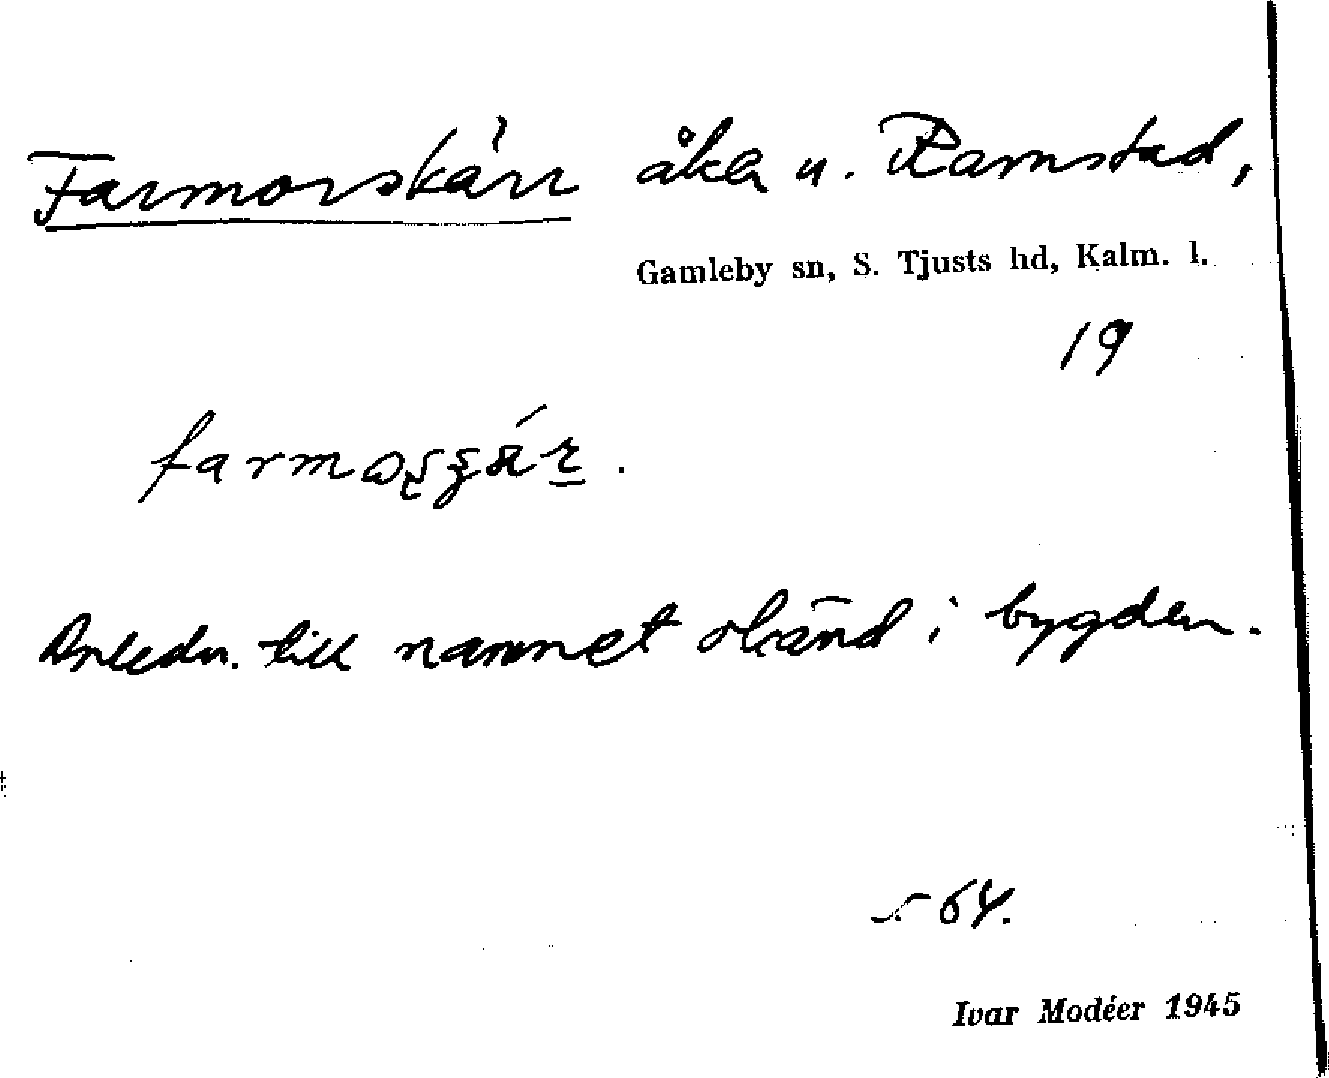 Farmorskärr åker u. Ramstad,
Gamleby sn, S. Tjusts hd, Kalm. l.
19
Anledn. till namnet okänd i bygden.
s. 64.
Ivar Modéer 1945